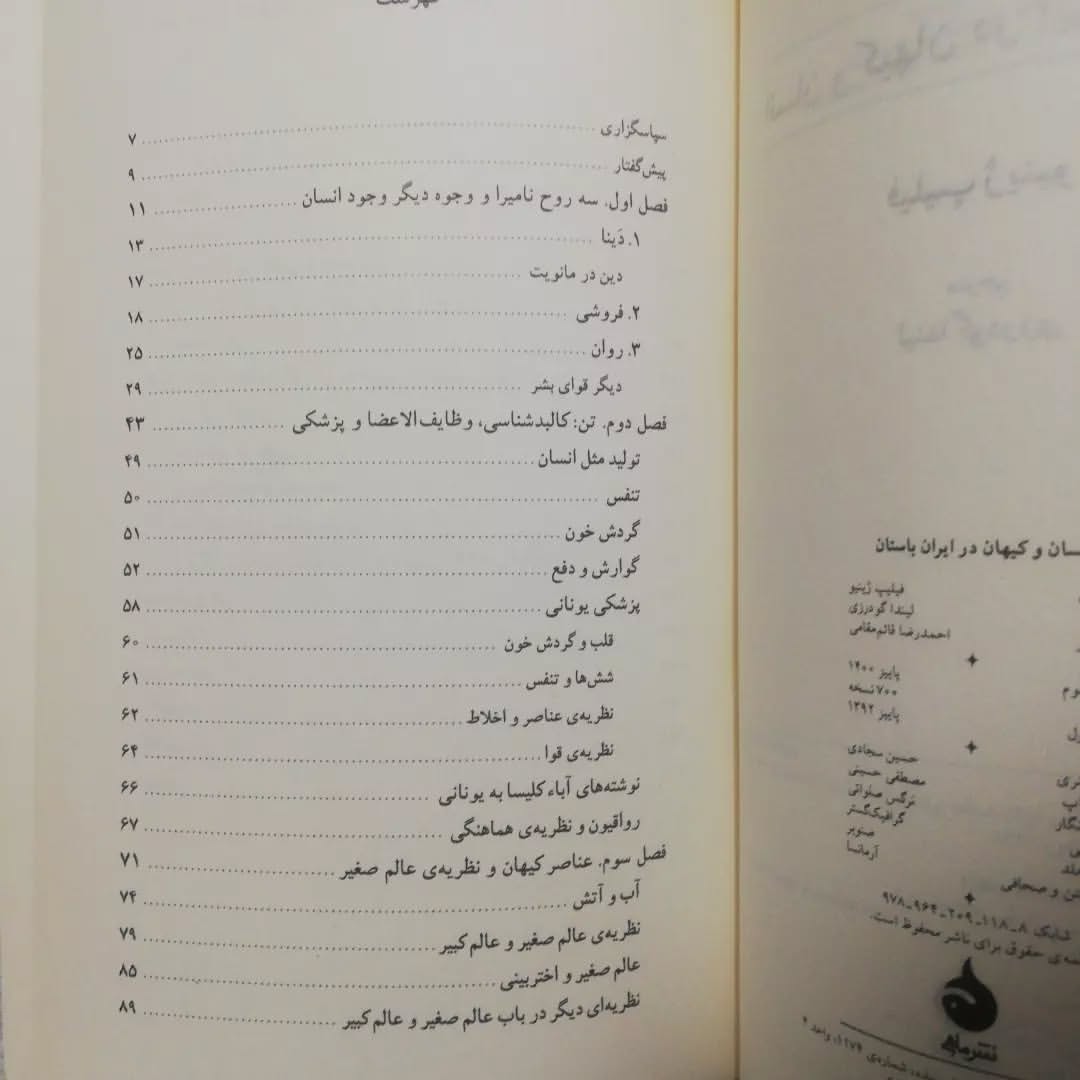 فهرست
سپاسگزاری ۷
پیش‌گفتار ۹
فصل اول. سه روح نامیرا و وجوه دیگر وجود انسان ۱۱
۱. دَینا ۱۳
دین در مانویت ۱۷
۲. فروشی ۱۸
۳. روان ۲۵
دیگر قوای بشر ۲۹
فصل دوم. تن: کالبدشناسی، وظایف‌الاعضا و پزشکی ۴۳
تولید مثل انسان ۴۹
تنفس ۵۰
گردش خون ۵۱
گوارش و دفع ۵۲
پزشکی یونانی ۵۸
قلب و گردش خون ۶۰
شش‌ها و تنفس ۶۱
نظریه‌ی عناصر و اخلاط ۶۲
نظریه‌ی قوا ۶۴
نوشته‌های آباء کلیسا به یونانی ۶۶
رواقیون و نظریه‌ی هماهنگی ۶۷
فصل سوم. عناصر کیهان و نظریه‌ی عالم صغیر ۷۱
آب و آتش ۷۴
نظریه‌ی عالم صغیر و عالم کبیر ۷۹
عالم صغیر و اختربینی ۸۵
نظریه‌ای دیگر در باب عالم صغیر و عالم کبیر ۸۹
کیهان در
فیلیپ ژینیو
مترجم
لیندا گودرزی
سان و کیهان در ایران باستان
فیلیپ ژینیو
لیندا گودرزی
احمدرضا قائم‌مقامی
پاییز ۱۴۰۰
۷۰۰ نسخه
پاییز ۱۳۹۲
حسین سجادی
مصطفی حسینی
نرگس صنوانی
گرافیک‌گستر
صنوبر
آرمانسا
شابک ۸-۱۱۸-۲۰۹-۹۶۴-۹۷۸
مه‌ی حقوق برای ناشر محفوظ است.
نشر ماهی
شماره‌ی ۱۱۷۴، واحد ۴